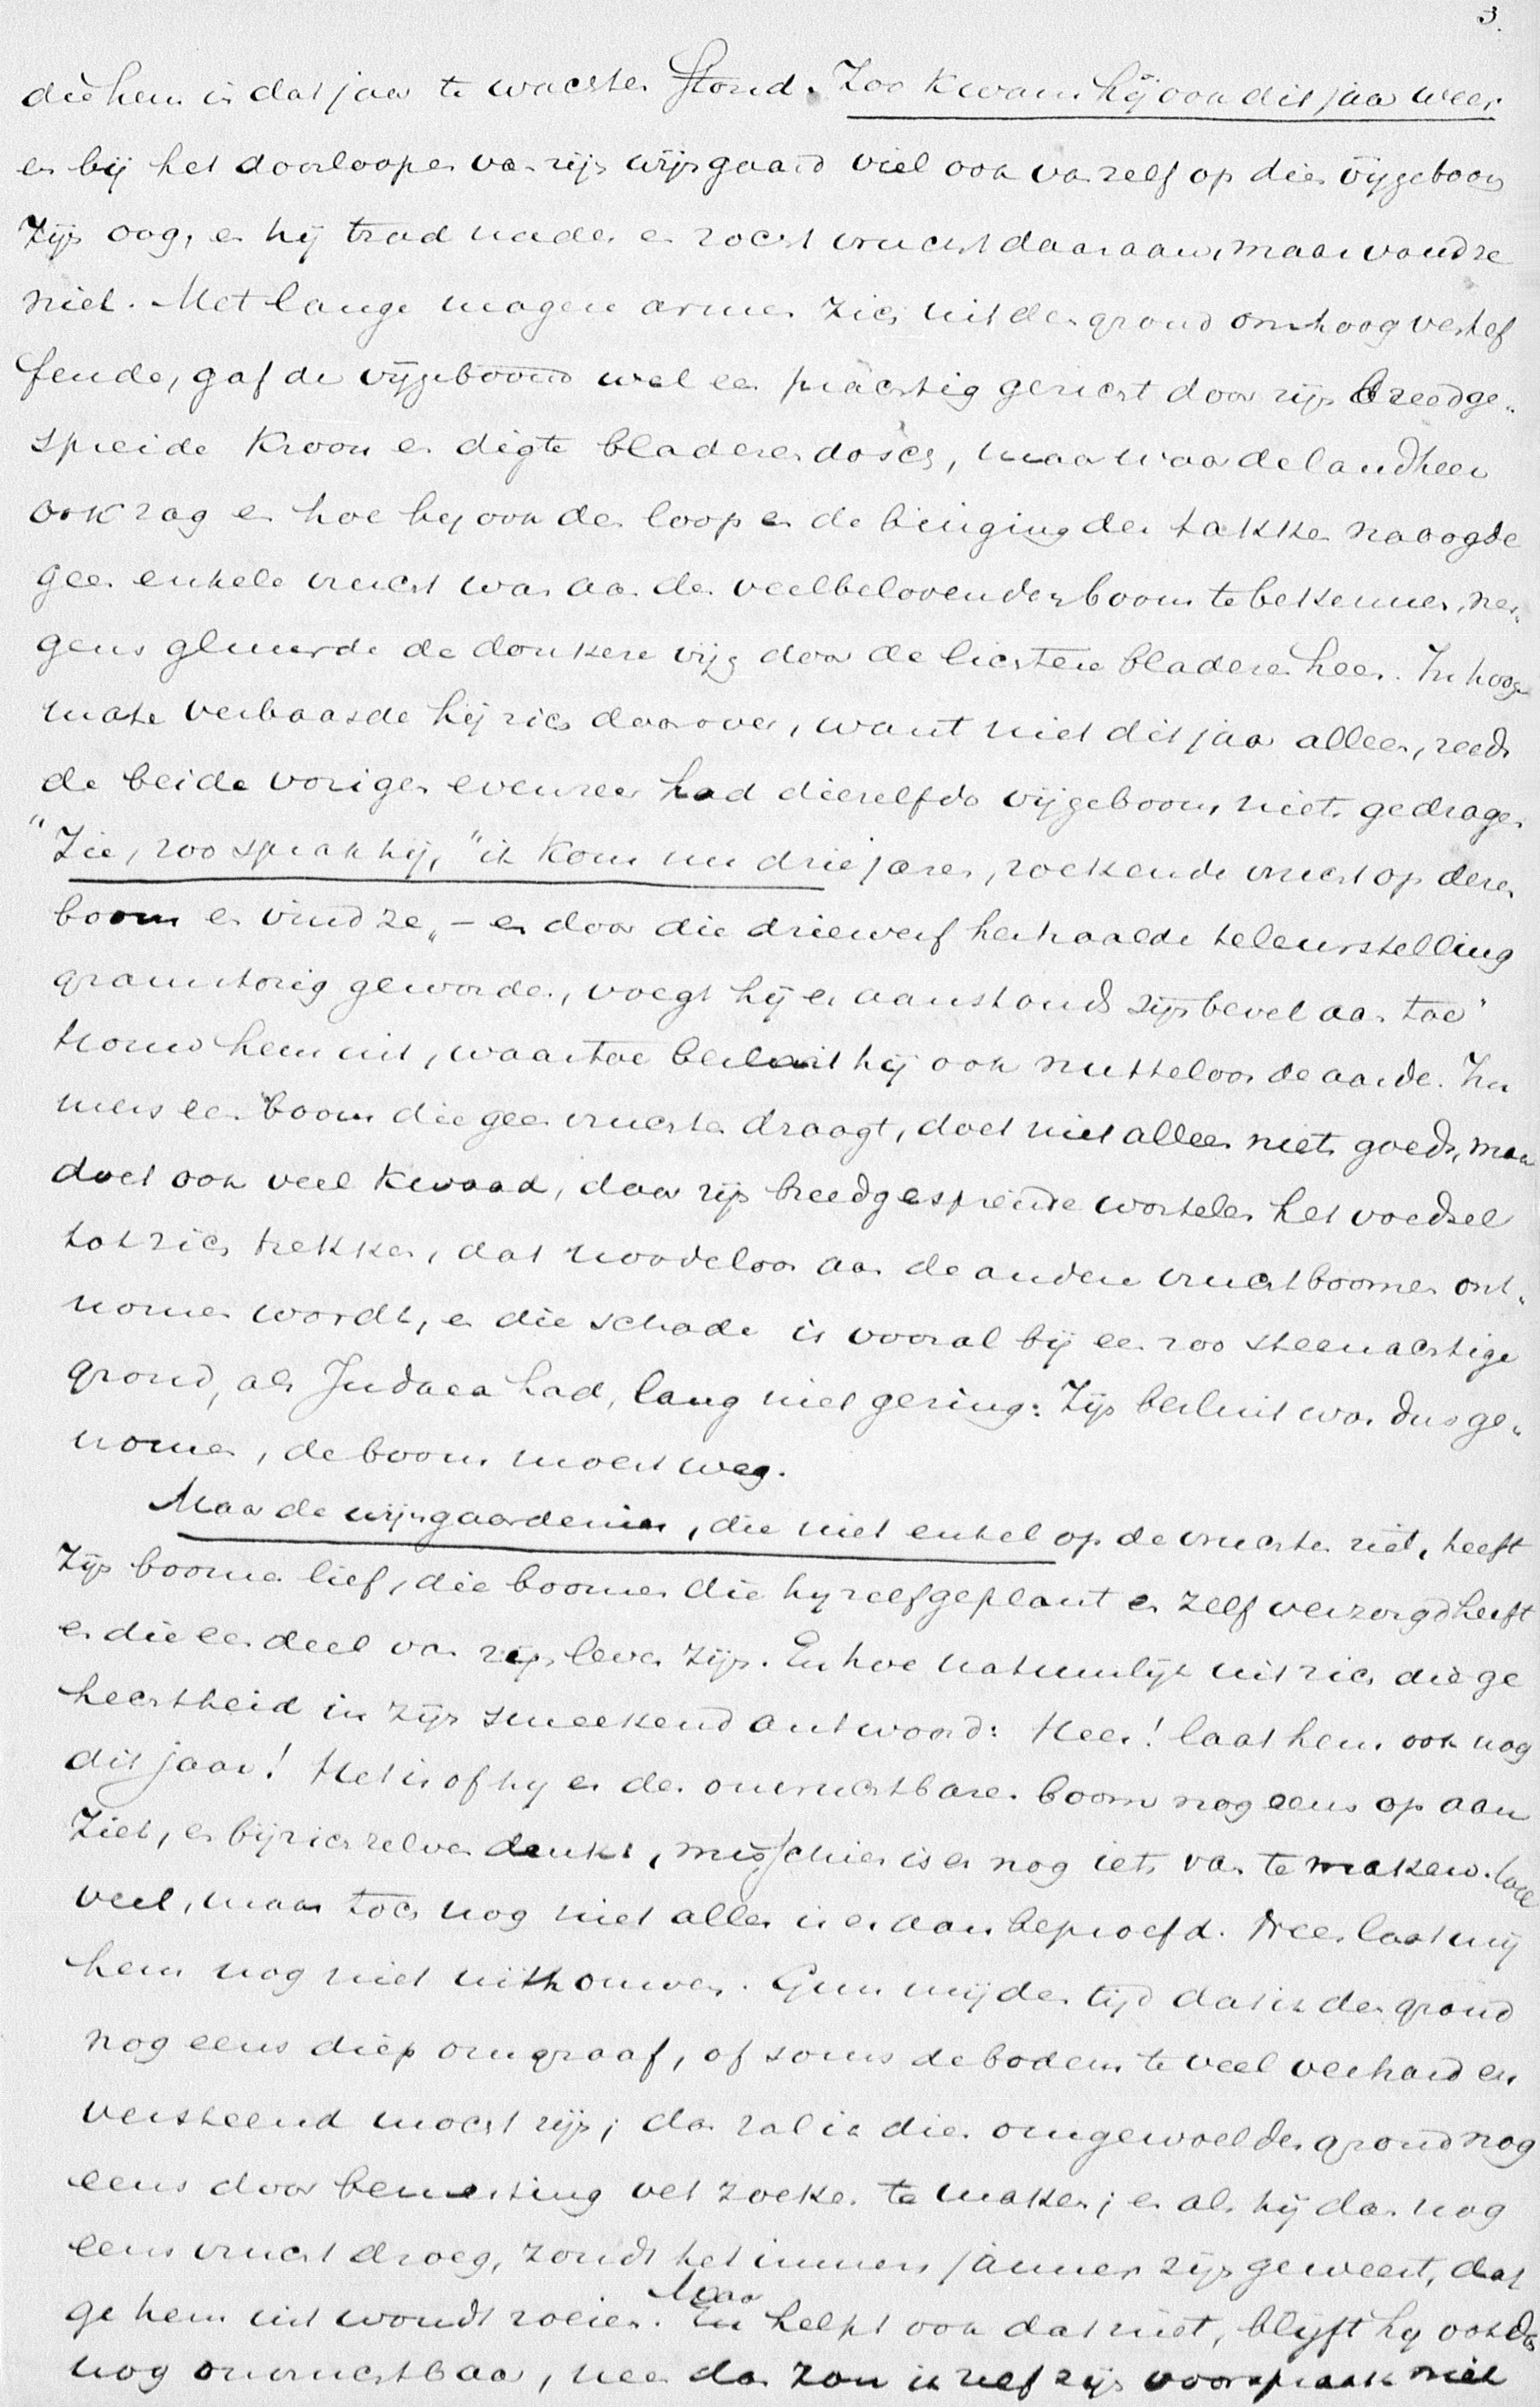 3.
die hem in dat jaar te wachten stond. Zoo kwam hij ook dit jaar weer
en bij het doorloopen van zijn wijngaard viel ook van zelf op dien vijgeboom
zijn oog, en hij trad nader en zocht vrucht daaraan, maar vond ze
niet. Met lange magere armen zich uit den grond omhoog verhef
fende, gaf de vijgeboom wel een prachtig gezicht door zijn breedge„
spreide kroon en digte bladerendosch, maar waar de landheer
ook zag en hoe hij ook den loop en de buiging der takken naoogde
geen enkele vrucht was aan den veelbelovenden boom te bekennen, ner„
gens gluurde de donkere vijg door de lichtere bladeren heen. In hooge
mate verbaasde hij zich daarover, want niet dit jaar alleen, reeds
de beide vorigen evenzeer had diezelfde vijgeboom niets gedragen
"Zie, zoo sprak hij, "ik kom nu drie jaren, zoekende vrucht op dezen
boom en vind ze„ – en door die driewerf herhaalde teleurstelling
gramstorig geworden, voegt hij er aanstonds zijn bevel aan toe"
houw hem uit, waartoe beslaat hij ook nutteloos de aarde. Im
mers een boom die geen vruchten draagt, doet niet alleen niets goeds, maar
doet ook veel kwaad, daar zijn breedgespreide wortelen het voedsel
tot zich trekken, dat noodeloos aan de andere vruchtboomen ont„
nomen wordt, en die schade is vooral bij een zoo steenachtige
grond, als Judaea had, lang niet gering: Zijn besluit was dus ge„
nomen, de boom moest weg.
Maar de wijngaardenier, die niet enkel op de vruchten ziet, heeft
zijn boomen lief, die boomen die hij zelf geplant en zelf verzorgd heeft
en die een deel van zijn leven zijn. En hoe natuurlijk uit zich die ge
hechtheid in zijn smeekend antwoord: Heer! laat hem ook nog
dit jaar! Het is of hij er den onvruchtbaren boom nog eens op aan
ziet, en bij zich zelven denkt, misschien is er nog iets van te maken.
veel, maar toch nog niet alles is er aan beproefd. Heer laat mij
hem nog niet uithouwen. Gun mij den tijd dat ik den grond
nog eens diep omgraaf, of soms de bodem te veel verhard en
versteend mocht zijn; dan zal ik dien omgewoelden grond nog
eens door bemesting vet zoeken te maken; en als hij dan nog
eens vrucht droeg, zoudt het immers jammer zijn geweest, dat
ge hem uit woudt roeien. Maar En helpt ook dat niet, blijft hij ook dan
nog onvruchtbaar, nee dan zou ik zelf zijn voorspraak niet